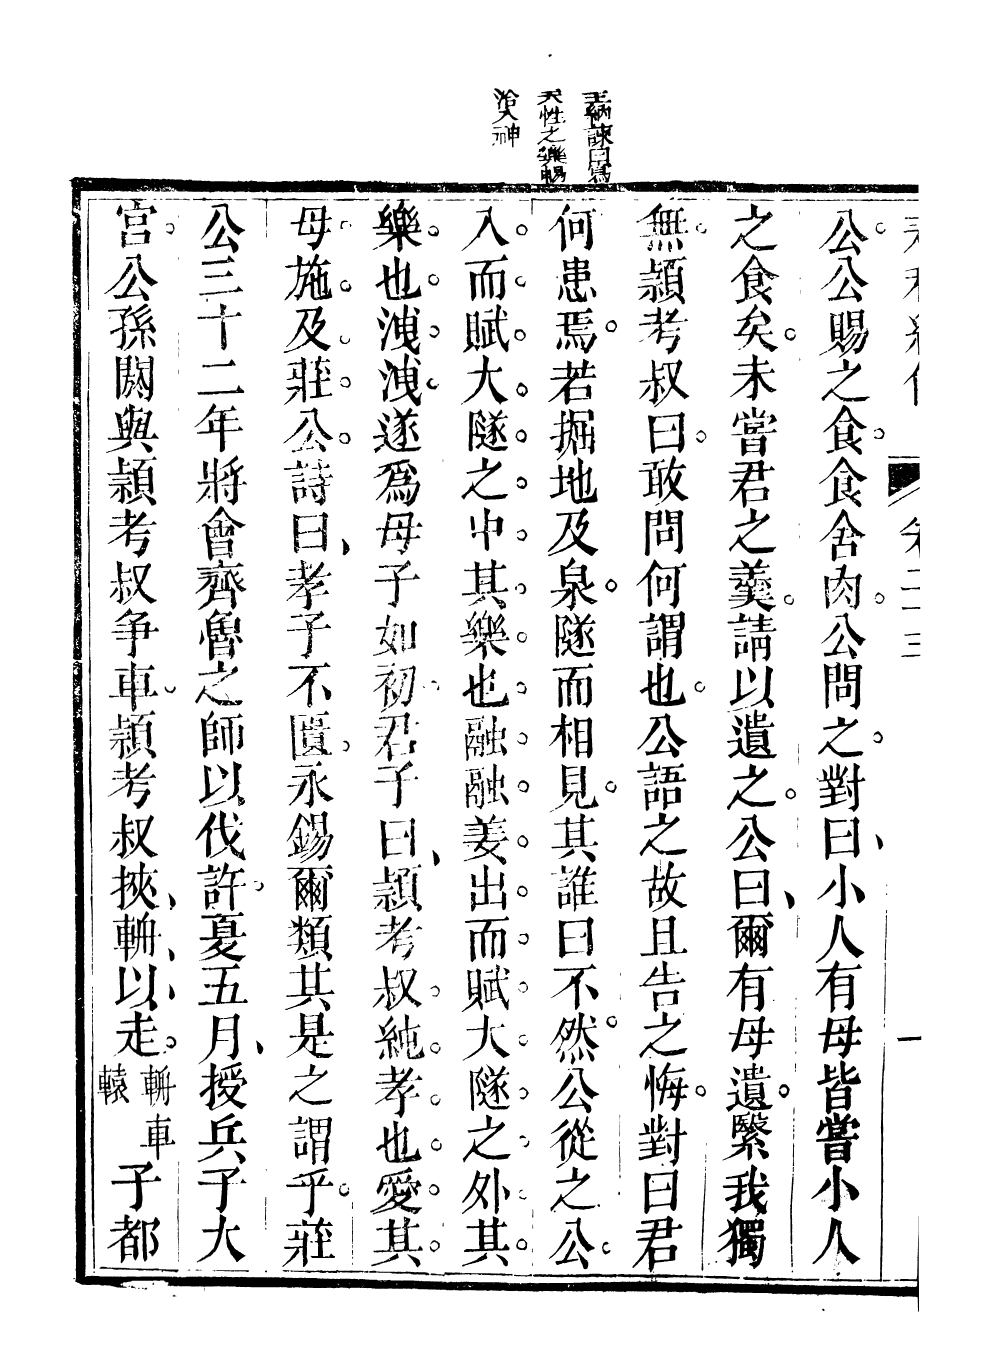 王納諫曰寫
天性之樂暢
洽人神
公公賜之食食舍肉公問之對曰小人有母皆嘗小人
之食矣未嘗君之羹請以遺之公曰爾有母遺繄我獨
無頴考叔曰敢問何謂也公語之故且告之悔對曰君
何患焉若掘地及泉隧而相見其誰曰不然公從之公
入而賦大隧之中其樂也融融姜出而賦大隧之外其
樂也洩洩遂爲母子如初君子曰頴考叔純孝也愛其
母施及莊公詩曰孝子不匱永錫爾類其是之謂乎莊
公三十二年將會齊魯之師以伐許夏五月授兵于大
宮公孫閼與頴考叔争車頴考叔挾輈以走輈車轅子都